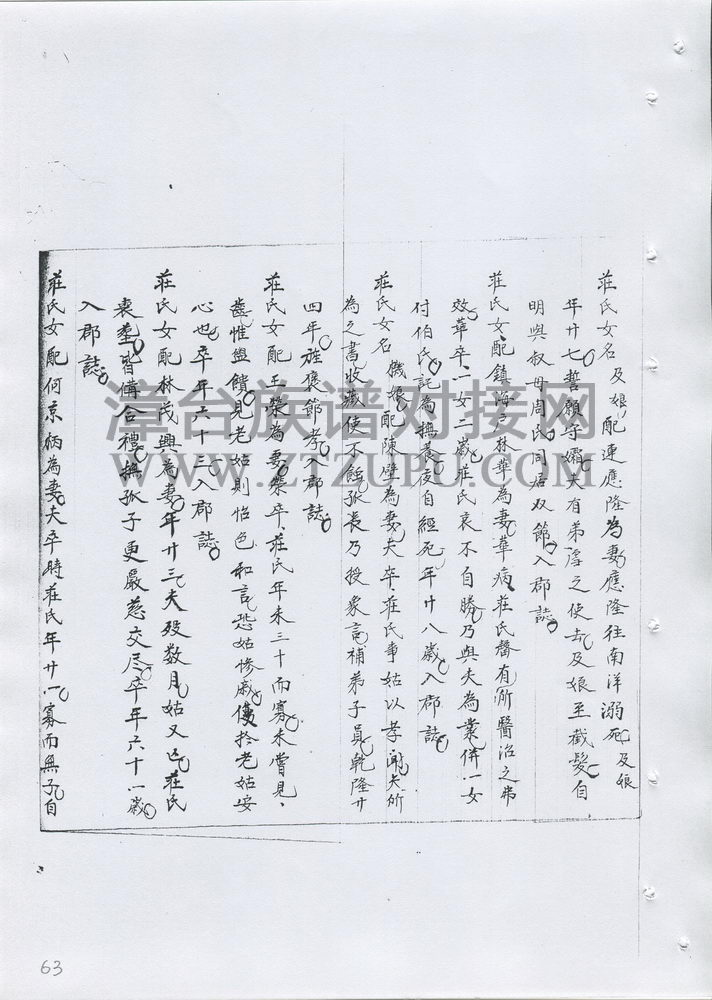 莊氏女名及娘配連應隆為妻應隆往南洋溺死及娘
年廿七誓願守孀夫有弟淂之使去及娘至截髮自
明與叔母周氏同居双節入郡誌
莊氏女配鎮海戶林華為妻華病莊氏罄有所醫治之弗
效華卒一女二歲莊氏哀不自勝乃與夫為業併一女
付伯氏託為撫養夜自經死年廿八歲入郡誌
莊氏女名機娘配陳壁為妻夫卒莊氏事姑以孝聞夫所
為之書收藏使不蝕孤長乃授象言補弟子員乾隆廿
四年旌褒節孝入郡誌
莊氏女配王榮為妻榮卒莊氏年未三十而寡未嘗見
齒惟盥饋見老姑則怡色和言恐姑慘戚傷於老姑安
心也卒年六十二入郡誌
莊氏女配林茂興為妻年廿三夫殁数月姑又亡莊氏
喪塟皆備合禮撫孤子更嚴慈交尽卒年六十一歲
入郡誌
莊氏女配何京炳為妻夫卒時莊氏年廿一寡而無子自
漳台族谱对接网
WWW.ZTZUPU.COM
63